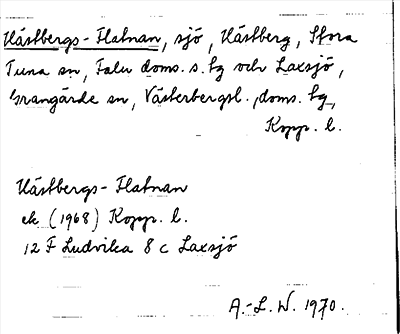 Håstbergs-Flatnan, sjö, Håstberg, Stora
Tuna sn, Falu doms. s. tg och Laxsjö,
Grangärde sn, Västerbergsl., doms. tg,
Kopp. l.
Håstbergs-Flatnan
ek (1968) Kopp. l.
12 F Ludvika 8 c Laxsjö
A.-L. W. 1970.